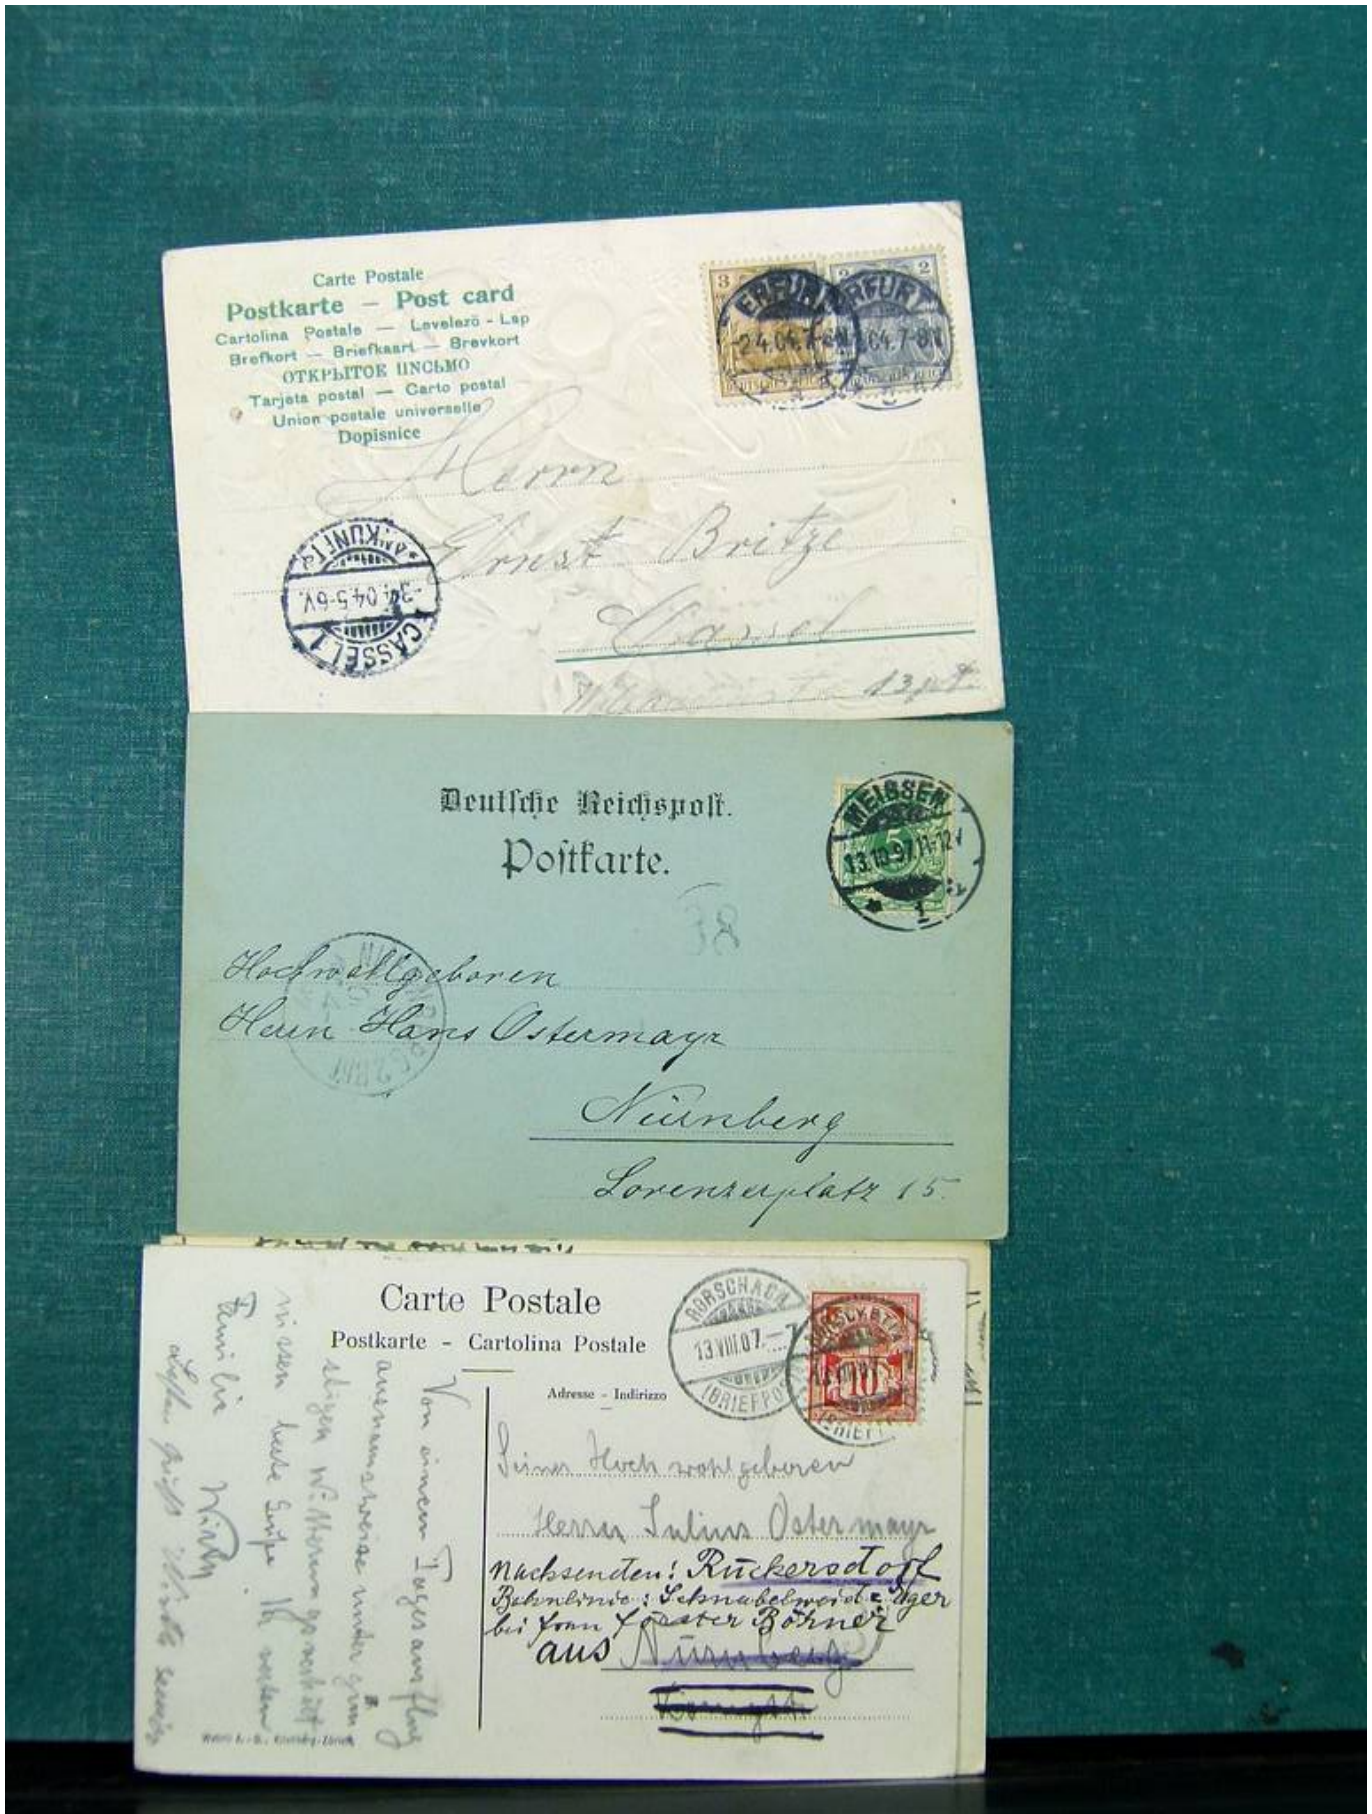 Carte Postale
Postkarte – Post card
Cartolina Postale — Levelezö - Lap
Brefkort — Briefkaart — Brevkort
ОТКРЫТОЕ ПИСЬМО
Tarjeta postal — Carto postal
Union postale universelle
Dopisnice
3 2 2
ERFURT ERFURT
-2.4.04.7-8N 04.7-8N
DEUTSCHES REICH DEUTSCHES REICH
Herrn
Ernst Britze
Cassel
13 pt.
CASSEL 1
-3.4.04.5-6V.
ANKUNFT
Deutsche Reichspost.
Postkarte.
MEISSEN
5
13.10.97.11-12V
1
38
Hochwohlgeboren
Herrn Hans Ostermayr
Nürnberg
Lorenzerplatz 15.
Carte Postale
Postkarte - Cartolina Postale
Adresse - Indirizzo
RORSCHACH
13.VIII.07.–7
(BRIEFPO
HELVETIA
10
Seiner Hochwohlgeboren
Herrn Julius Ostermayr
Nachsenden: Rückersdorf
Bahnlinie: Schnabelwaid = Eger
bei Frau Förster Börner
aus Nürnberg
Von einem Tagesausflug
ausnamsweise unter gün-
stigen Witterungs
Familie Wirth